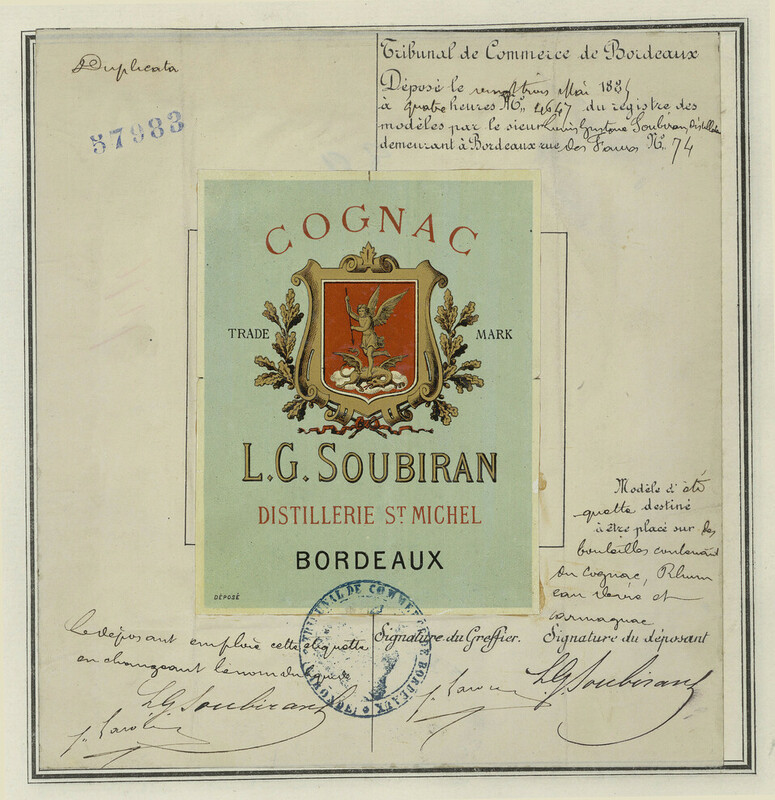 Duplicata
57983
Tribunal de Commerce de Bordeaux
Déposé le vingt trois Mai 188
à quatre heures N.º 4647 du registre des
modèles par le sieur Louis Gustave Soubiran, Distillateur
demeurant à Bordeaux rue des Faures N.º 74
COGNAC
TRADE MARK
L.G. SOUBIRAN
DISTILLERIE ST MICHEL
BORDEAUX
DÉPOSÉ
Modèle d'éti
quette destiné
à être placé sur des
bouteilles contenant
du cognac, Rhum
eau de vie et
armagnac
Le déposant emploie cette étiquette
en changeant le nom du
TRIBUNAL DE COMMERCE DE BORDEAUX
Signature du Greffier.
Signature du déposant
L.G. Soubiran
L.G. Soubiran